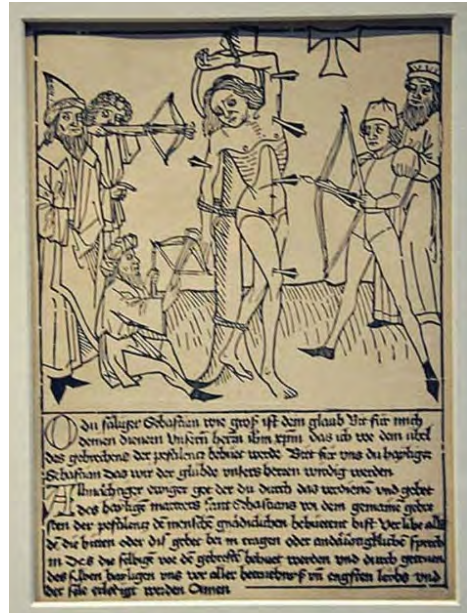 O du säliger Sebastian wie groß ist dein glaub Bit für mich
deinen dienern Unsern herrn ihm xpm das ich vor dem übel
des gebrechens der pestilentz behüet werde Bitt für uns du hayliger
Sebastian das wir der glübde unsers herren wirdig werden
Allmächtiger ewiger got der du durch das verdienen und gebet
des haylige martrers sant Sebastians vor dem gemaine gebre
sten der pestilentz die mensche gnädiclichen behüetent bist Verlihe alle
de die bitten oder diß gebet bei in tragen oder andächtigkliche sprech
in Des die selbige vor de gebresten behüet werden und durch getruen
des selben hayligen uns vor aller betrüebnuß un engsten leibs und
der sele erlediget werden Amen